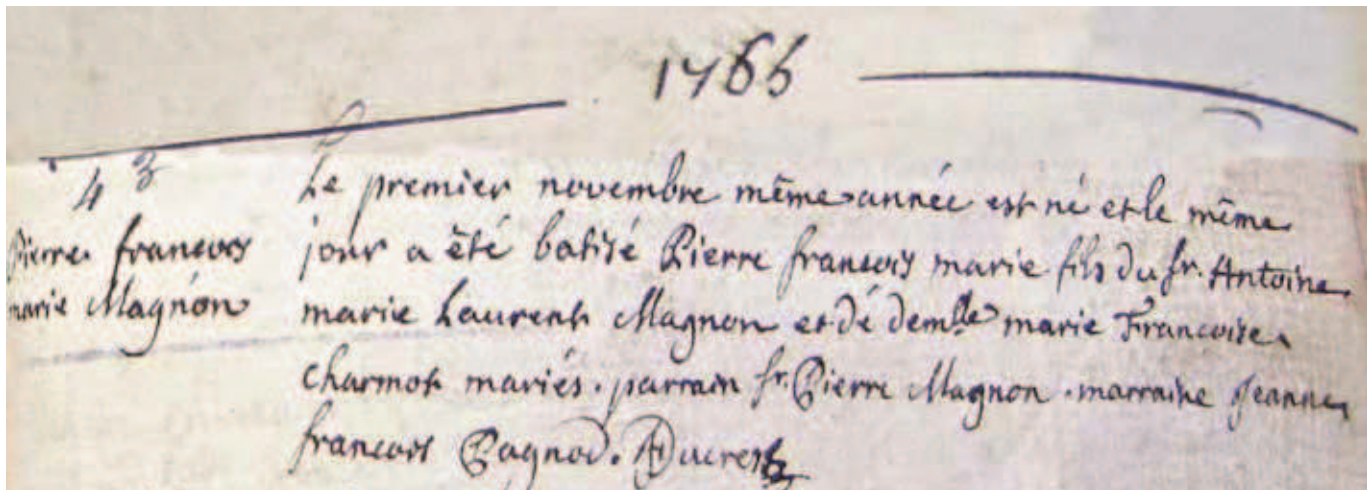 1766
43
Pierre francois
marie Magnon
Le premier novembre même année est né et le même
jour a été batisé Pierre francois marie fils du Sr. Antoine
marie Laurent Magnon et dé demlle marie Francoise
charmot mariés. parrain Sr. Pierre Magnon. marraine Jeanne
francois Pagnod. Ducrest